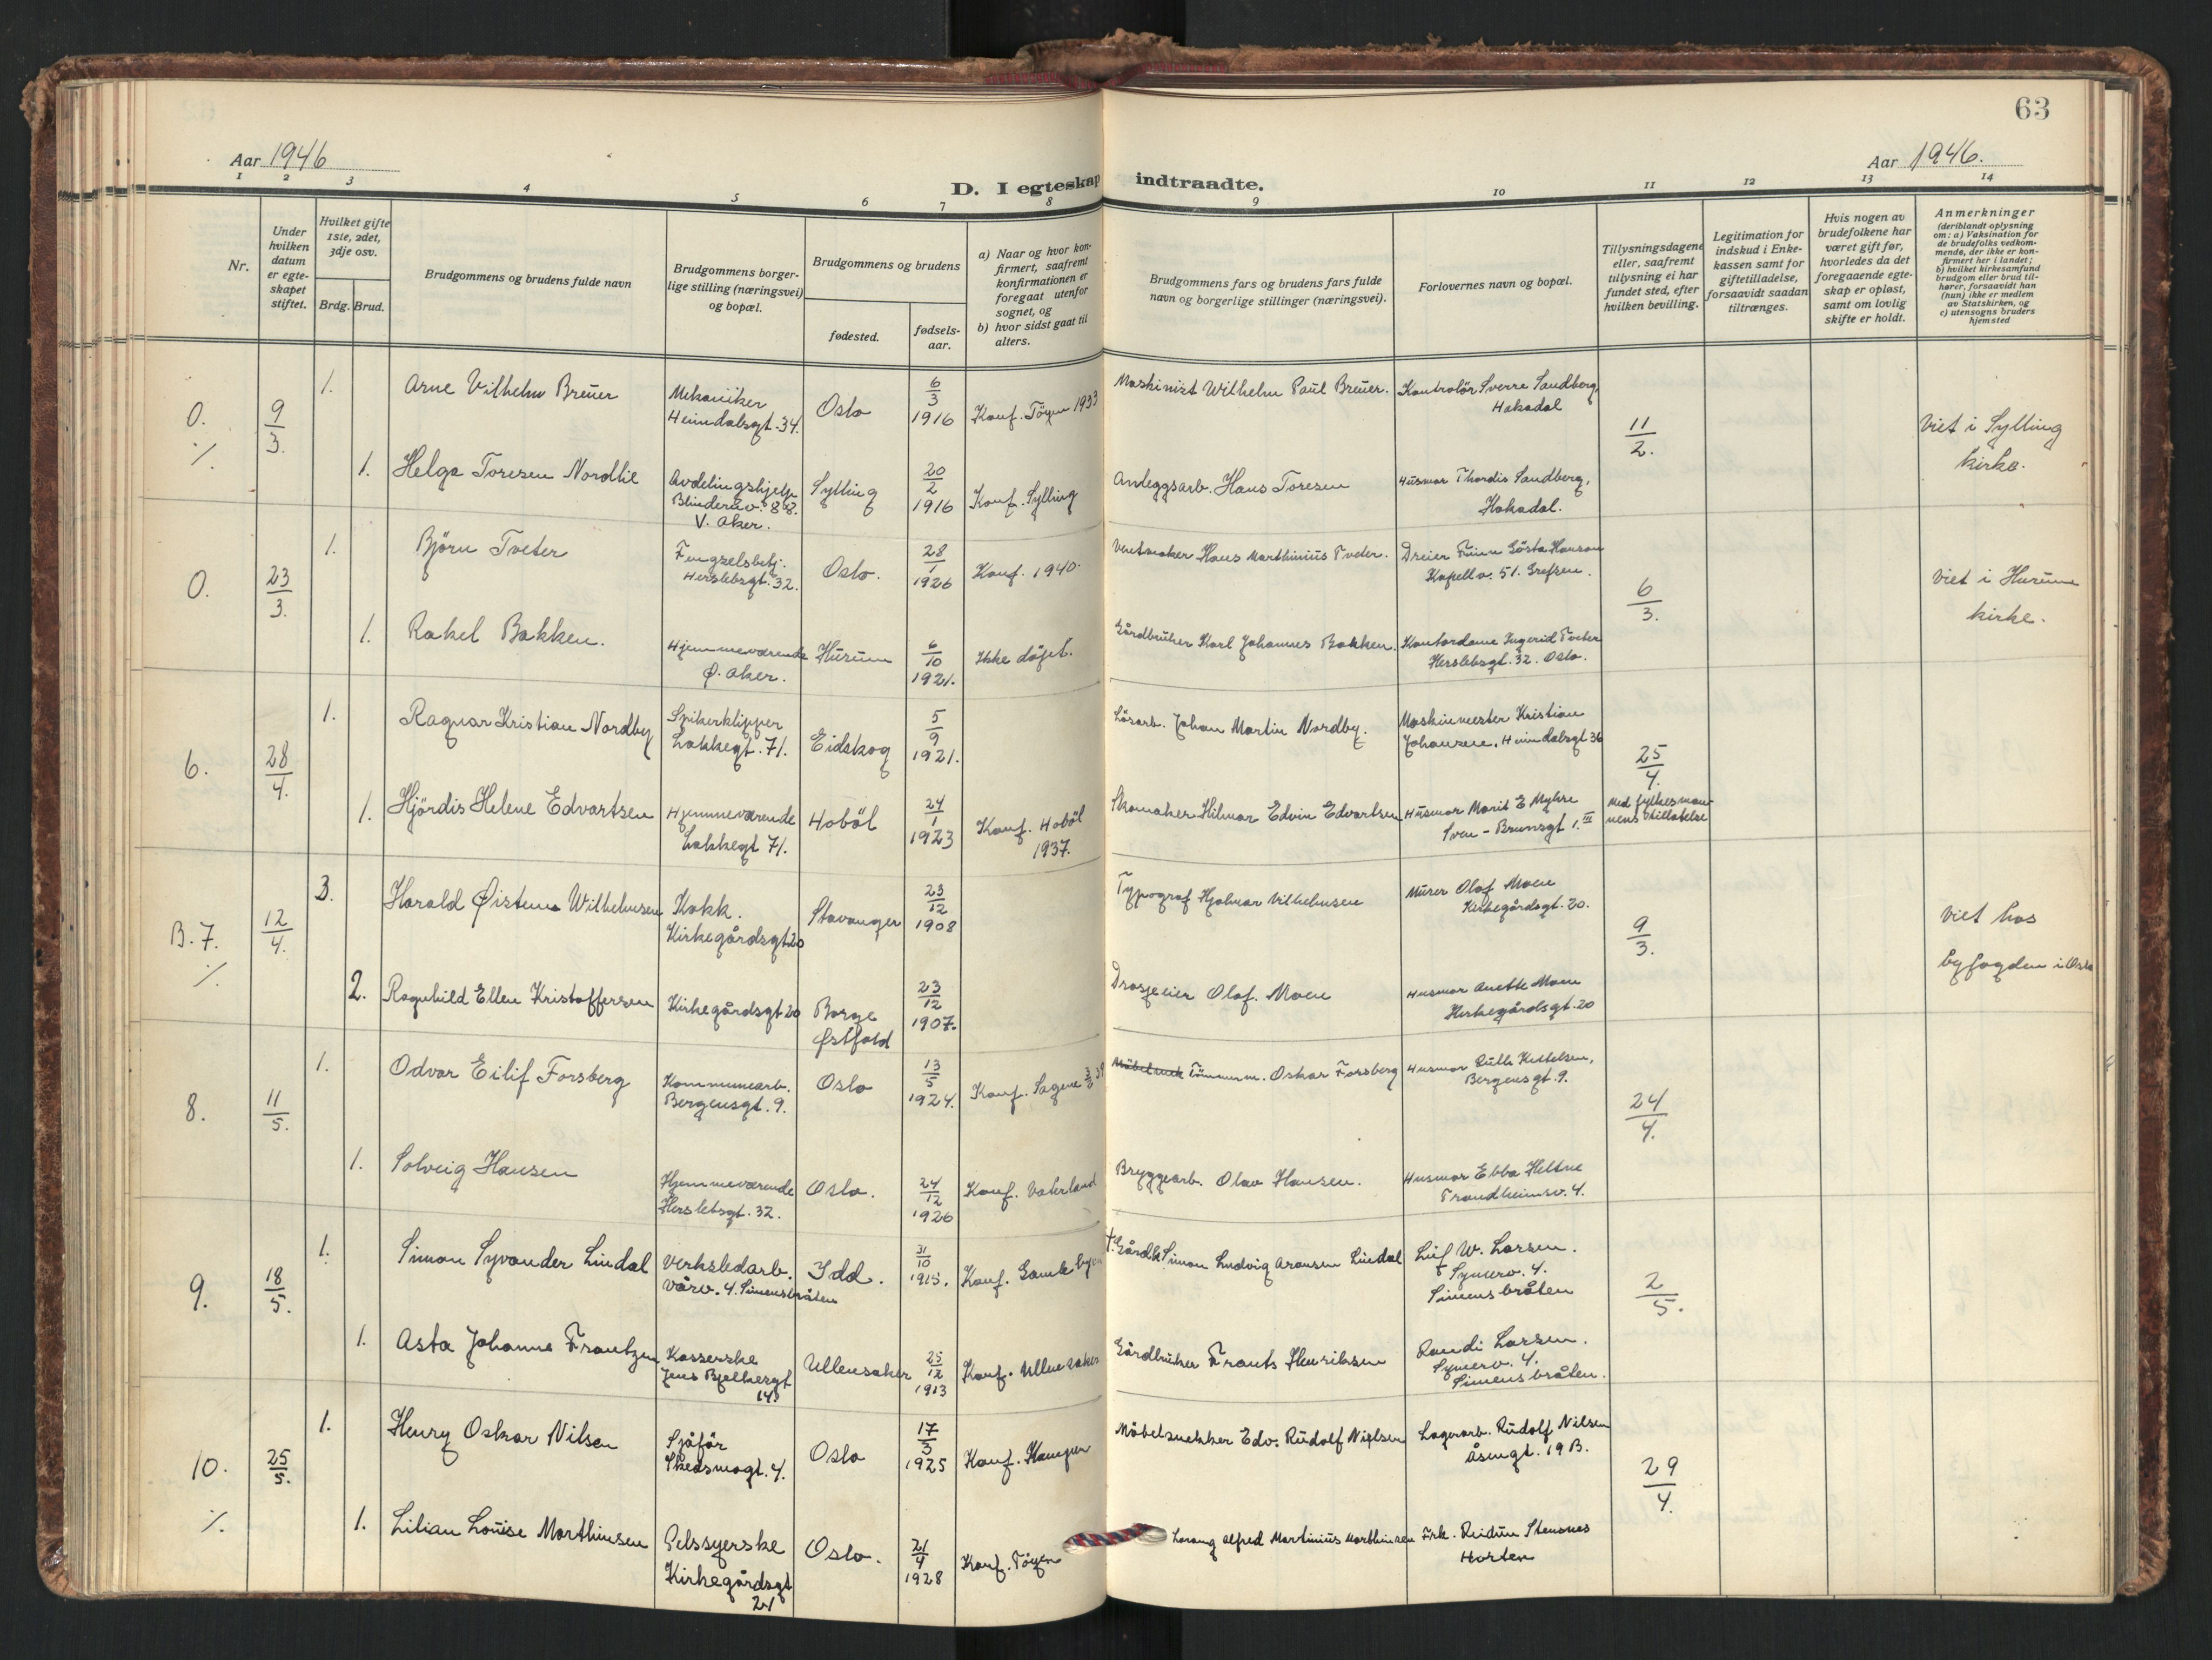 63
Aar 1946
Aar 1946.
D. I egteskap indtraadte.
1 2 3 4 5 6 7 8 9 10 11 12 13 14
Nr.
Under hvilken datum er egteskapet stiftet.
Hvilket gifte 1ste, 2det, 3dje osv.
Brdg. Brud.
Brudgommens og brudens fulde navn
Brudgommens borgerlige stilling (næringsvei) og bopæl.
Brudgommens og brudens
fødested.
fødselsaar.
a) Naar og hvor konfirmert, saafremt konfirmationen er foregaat utenfor sognet, og
b) hvor sidst gaat til alters.
Brudgommens fars og brudens fars fulde navn og borgerlige stillinger (næringsvei).
Forlovernes navn og bopæl.
Tillysningsdagene eller, saafremt tillysning ei har fundet sted, efter hvilken bevilling.
Legitimation for indskud i Enkekassen samt for giftetilladelse, forsaavidt saadan tiltrænges.
Hvis nogen av brudefolkene har været gift før, hvorledes da det foregaaende egteskap er opløst, samt om lovlig skifte er holdt.
Anmerkninger (deriblandt oplysning om: a) Vaksination for de brudefolks vedkommende, der ikke er konfirmert her i landet; b) hvilket kirkesamfund brudgom eller brud tilhører, forsaavidt han (hun) ikke er medlem av Statskirken, og c) utensogns bruders hjemsted
0. 9/3. 1. Arne Vilhelm Breuer Mekaniker Heimdalsgt. 34. Oslo 6/3 1916 Konf. Töyen 1933 Maskinist Wilhelm Paul Breuer. Kontrolör Sverre Sandberg, Hakadal 11/2. Viet i Sylling kirke.
1. Helga Toresen Nordlie Avdelingshjelp Blindernv. 88. V. Aker. Sylling 20/2 1916 Konf. Sylling Anleggsarb. Hans Toresen Husmor Thordis Sandberg, Hakadal.
0. 23/3. 1. Björn Tveter Fengselsbetj. Herslebsgt. 32. Oslo. 28/1 1926 Konf. 1940. Hans Marthinius Tveter. Dreier Finn Gösta Hanson Kapellv. 51. Grefsen. 6/3. Viet i Hurum kirke.
1. Rakel Bakken. Hjemmeværende Ø. Aker. Hurum 6/10 1921. Ikke döpt. Gårdbruker Karl Johannes Bakken. Kontordame Ingerid Tveter Herslebsgt. 32. Oslo.
6. 28/4. 1. Ragnar Kristian Nordby Spikerklipper Lakkegt. 71. Eidskog 5/9 1921. Lösarb. Johan Martin Nordby. Maskinmester Kristian Johansen, Heimdalsgt 36 25/4. Med fylkesmannens tillatelse
1. Hjördis Helene Edvartsen Hjemmeværende Lakkegt 71. Hoböl 24/1 1923 Konf. Hoböl 1937. Skomaker Hilmar Edvin Edvartsen Husmor Marit E Myhre Sven-Brunsgt 1. III
B. 7. 12/4. 3. Harald Øistein Wilhelmsen Kokk. Kirkegårdsgt 20 Stavanger 23/12 1908 Typograf Hjalmar Vilhelmsen Murer Olaf Moen Kirkegårdsgt. 20. 9/3. Viet hos byfogden i Oslo
2. Ragnhild Ellen Kristoffersen Kirkegårdsgt 20 Borge Østfold 23/12 1907. Drosjeeier Olaf. Moen Husmor Anette Moen Kirkegårdsgt. 20
8. 11/5. 1. Odvar Eilif Forsberg Kommunearb. Bergensgt. 9. Oslo 13/5 1924. Konf. Sagene Tömmerm. Oskar Forsberg Husmor Gulla Kittelsen, Bergensgt. 9. 24/4.
1. Solveig Hansen Hjemmeværende Herslebsgt. 32. Oslo. 24/12 1926 Konf. Vaterland Bryggearb. Olav Hansen. Husmor Ebba Heltne Trondheimsv. 4.
9. 18/5. 1. Simon Syvander Lindal Verkstedarb. Vårv. 4. Simensbråten Idd. 31/10 1915. Konf. Gamlebyen Gårdb. Simon Ludvig Aronsen Lindal Leif W. Larsen. Symerv. 4. Simensbråten 2/5.
1. Asta Johanne Frantzen Kasserske Jens Bjelkesgt 14 Ullensaker 25/12 1913 Konf. Ullensaker Gårdbruker Frants Henriksen Randi Larsen. Symerv. 4. Simensbråten.
10. 25/5. 1. Henry Oskar Nilsen Sjåför Skedsmogt. 4. Oslo 17/3 1925 Konf. Kampen Möbelsnekker Edv. Rudolf Nielsen Lagerarb. Rudolf Nilsen Åsengt. 19 B. 29/4.
1. Lilian Louise Marthinsen Pelssyerske Kirkegårdsgt 24 Oslo. 21/4 1928 Konf. Töyen Lorang Alfred Martinius Marthinsen Frk. Reidun Stensnes Horten